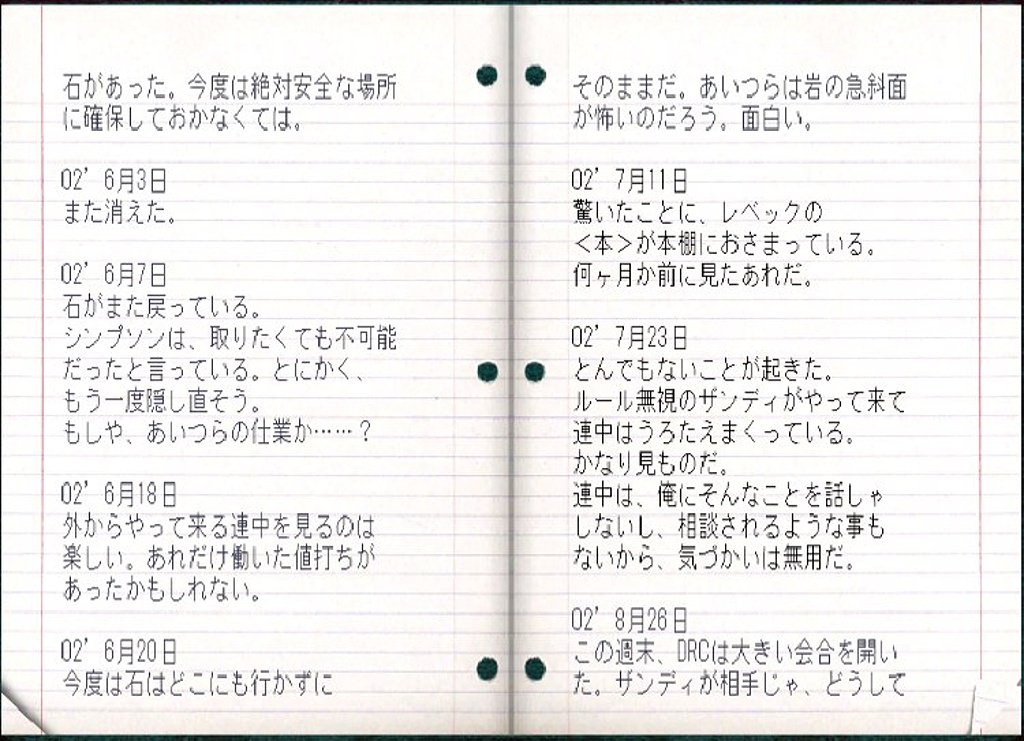 石があった。今度は絶対安全な場所
に確保しておかなくては。
02’ 6月3日
また消えた。
02’ 6月7日
石がまた戻っている。
シンプソンは、取りたくても不可能
だったと言っている。とにかく、
もう一度隠し直そう。
もしや、あいつらの仕業か……？
02’ 6月18日
外からやって来る連中を見るのは
楽しい。あれだけ働いた値打ちが
あったかもしれない。
02’ 6月20日
今度は石はどこにも行かずに
そのままだ。あいつらは岩の急斜面
が怖いのだろう。面白い。
02’ 7月11日
驚いたことに、レベックの
＜本＞が本棚におさまっている。
何ヶ月か前に見たあれだ。
02’ 7月23日
とんでもないことが起きた。
ルール無視のザンディがやって来て
連中はうろたえまくっている。
かなり見ものだ。
連中は、俺にそんなことを話しゃ
しないし、相談されるような事も
ないから、気づかいは無用だ。
02’ 8月26日
この週末、DRCは大きい会合を開い
た。ザンディが相手じゃ、どうして